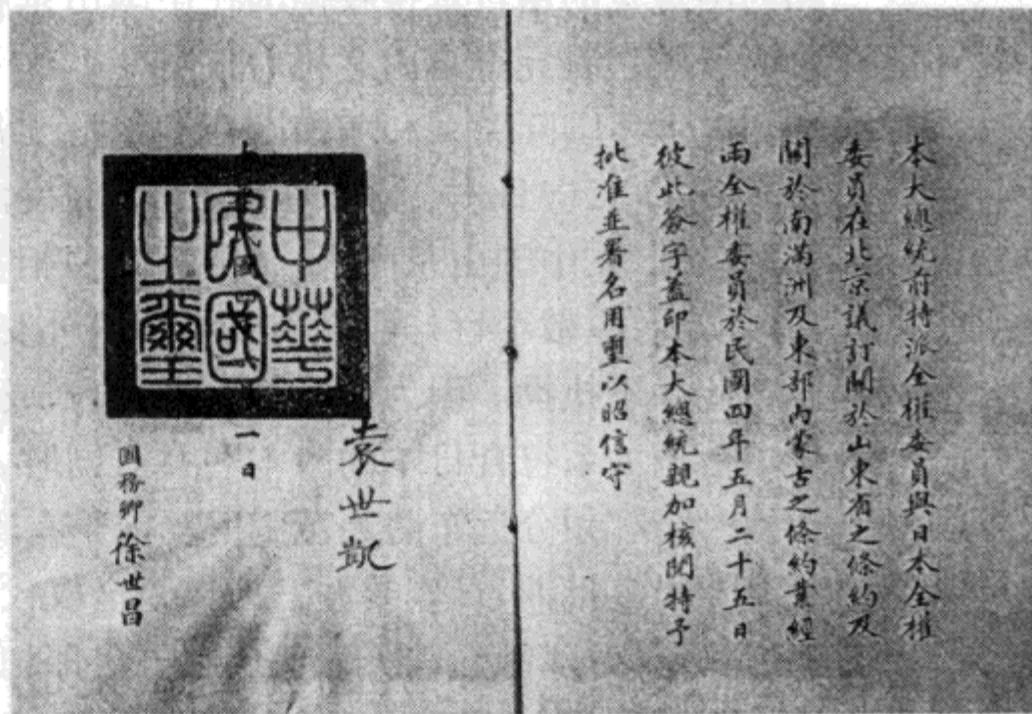 本大總統前特派全權委員與日本全權
委員在北京議訂關於山東省之條約及
關於南滿洲及東部內蒙古之條約業經
兩全權委員於民國四年五月二十五日
彼此簽字蓋印本大總統親加核閱特予
批准並署名用璽以昭信守
袁世凱
中華民國之璽
國
一日
國務卿徐世昌